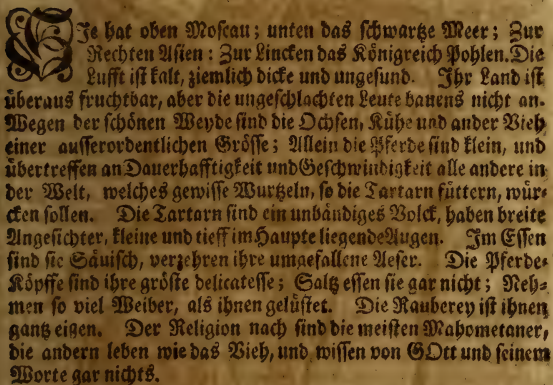 SIe hat oben Moscau; unten das schwartze Meer; Zur
Rechten Asien: Zur Lincken das Königreich Pohlen. Die
Lufft ist kalt, ziemlich dicke und ungesund. Ihr Land ist
überaus fruchtbar, aber die ungeschlachten Leute bauens nicht an.
Wegen der schönen Weyde sind die Ochsen, Kühe und ander Vieh
einer ausserordentlichen Grösse; Allein die Pferde sind klein, und
übertreffen an Dauerhafftigkeit und Geschwindigkeit alle andere in
der Welt, welches gewisse Wurtzeln, so die Tartarn füttern, wür-
cken sollen. Die Tartarn sind ein unbändiges Volck, haben breite
Angesichter, kleine und tieff im Haupte liegende Augen. Im Essen
sind sie Säuisch, verzehren ihre umgefallene Aeser. Die Pferde-
Köpffe sind ihre gröste delicatesse; Saltz essen sie gar nicht; Neh-
men so viel Weiber, als ihnen gelüstet. Die Rauberey ist ihnen
gantz eigen. Der Religion nach sind die meisten Mahometaner,
die andern leben wie das Vieh, und wissen von GOtt und seinem
Worte gar nichts.